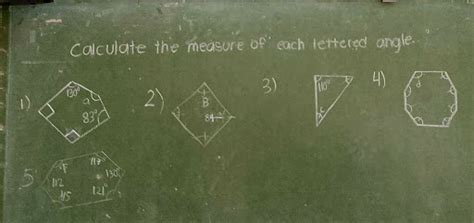 Calculate the measure of each lettered angle.
1)
130°
a
83°
2)
B
84
3)
110°
c
4)
d
5
117
130
121
112